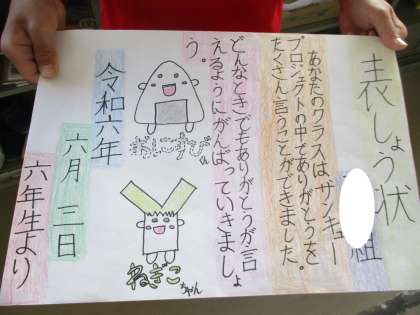 表しょう状
組
あなたのクラスはサンキュー
プロジェクトの中でありがとうを
たくさん言うことができました。
どんなときでもありがとうが言
えるようにがんばっていきましょ
う。
おむすびくん
ねぎこちゃん
令和六年
六月三日
六年生より